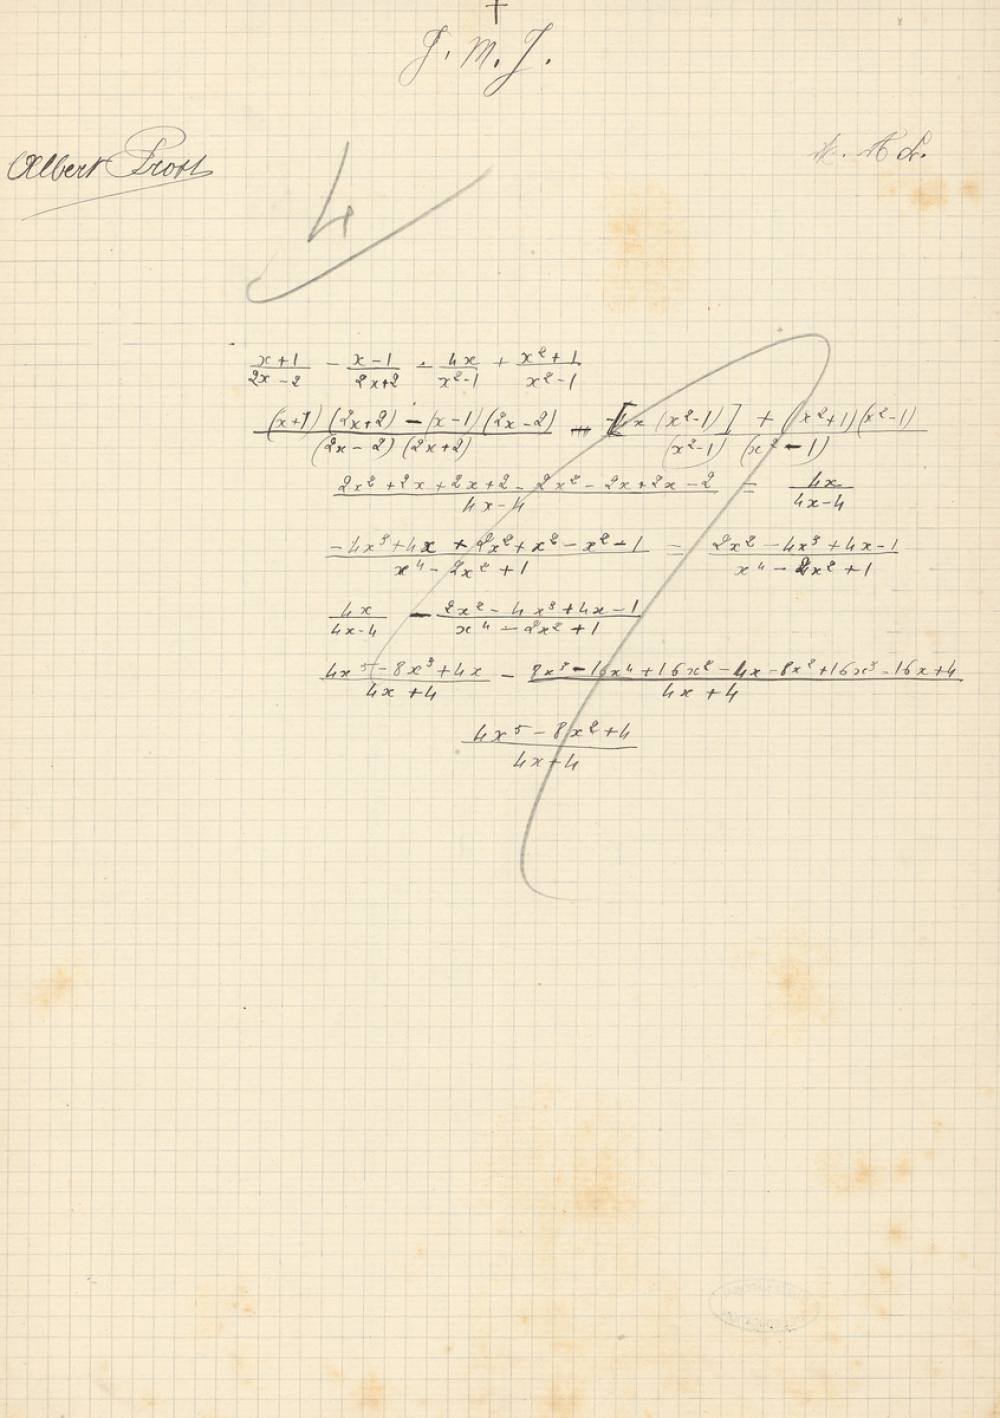 J. M. J.
Albert Prost
4
x+1/2x-2 - x-1/2x+2 - 4x/x²-1 + x²+1/x²-1
(x+1)(2x+2) - (x-1)(2x-2)/(2x-2)(2x+2) [4x(x²-1)] + (x²+1)(x²-1)/(x²-1)(x²-1)
2x²+2x+2x+2-2x²-2x+2x-2/4x-4 = 4x/4x-4
-4x³+4x+2x²+x²-x²-1/x⁴-2x²+1 = 2x²-4x³+4x-1/x⁴-2x²+1
4x/4x-4 - 2x²-4x³+4x-1/x⁴-2x²+1
4x⁵-8x³+4x/4x+4 - 8x³-16x⁴+16x²-4x-8x²+16x³-16x+4/4x+4
4x⁵-8x²+4/4x-4